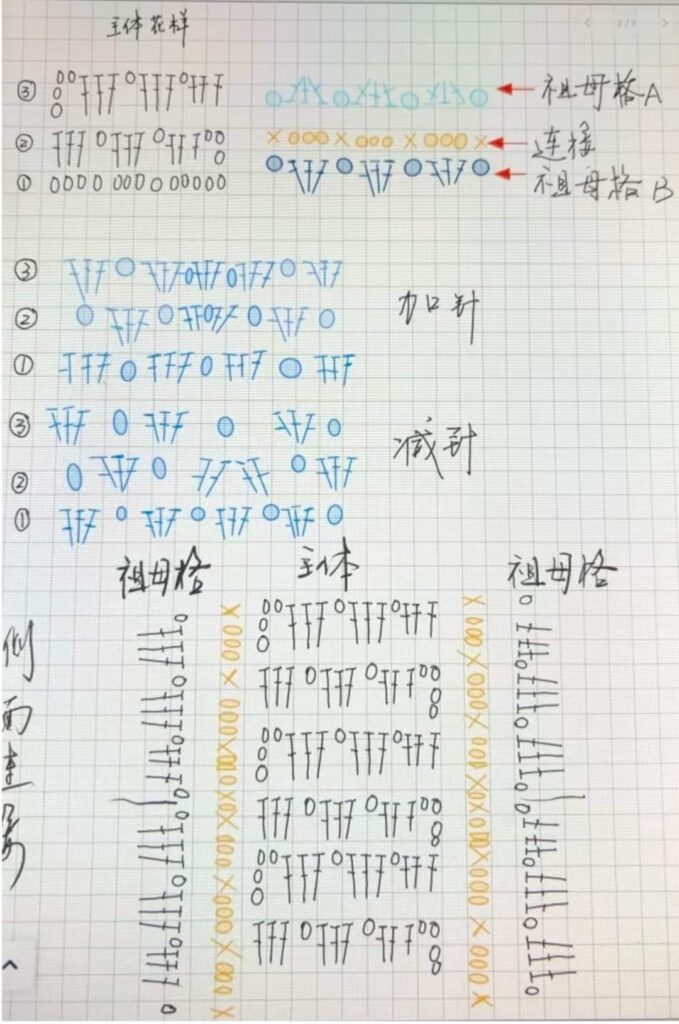 主体花样
2/3
③
祖母格A
②
连接
①
祖母格B
③
②
加针
①
③
减针
②
①
祖母格 主体 祖母格
侧
面
连